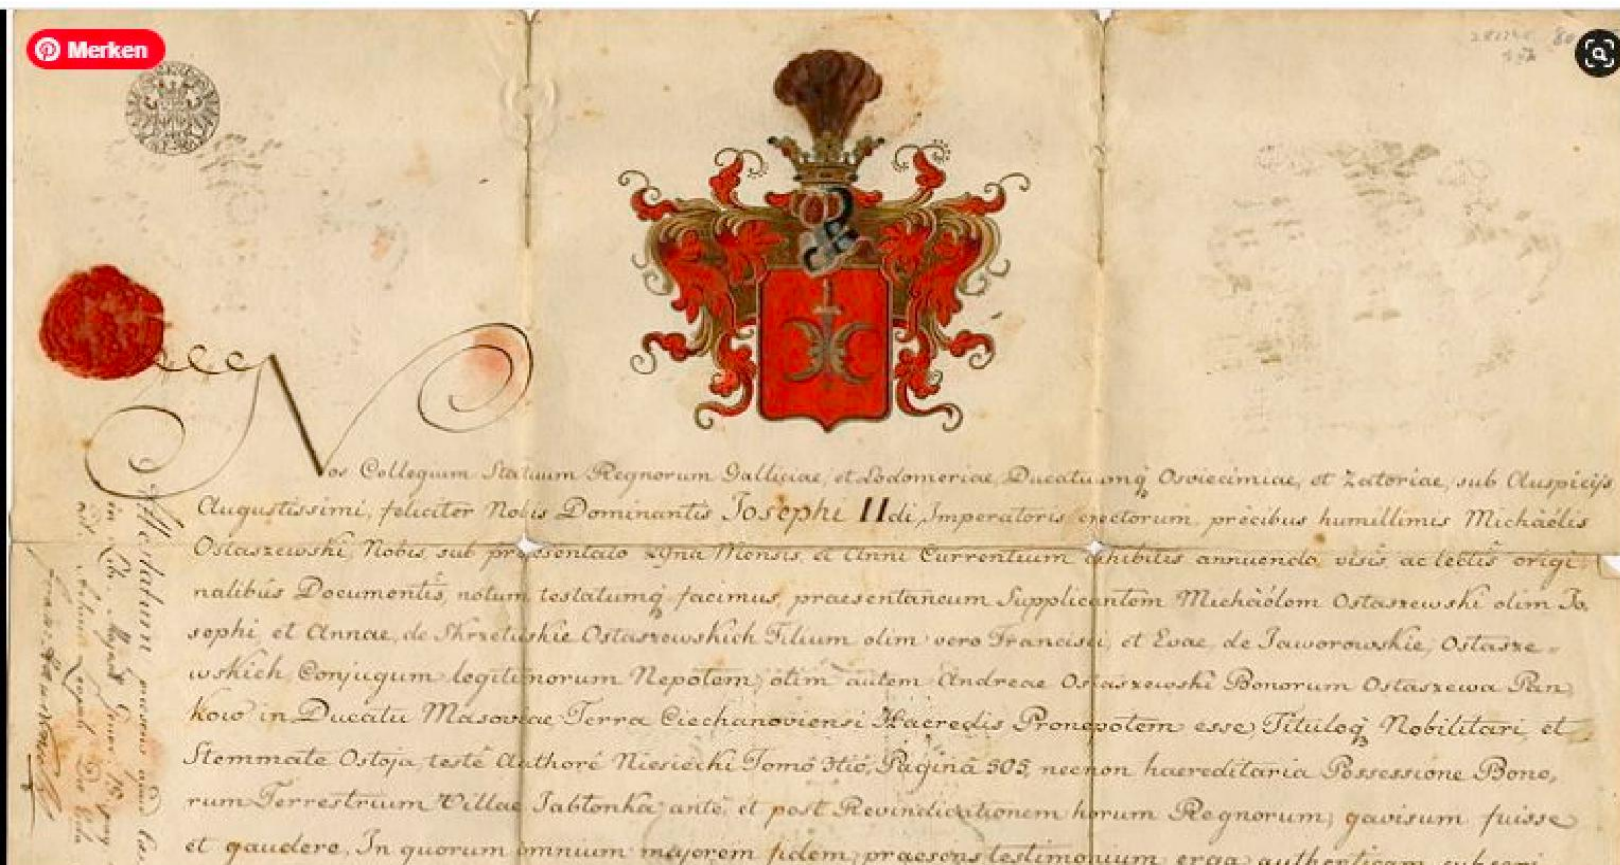 Merken
Nos Collegium Statuum Regnorum Galliciae, et Lodomeriae, Ducatuumq̃ Osviecimiae, et Zatoriae, sub Auspicijs
Augustissimi, feliciter Nobis Dominantis Josephi IIdi Imperatoris erectorum, precibus humillimis Michäelis
Ostaszewski, Nobis sub praesentato Mensis, et Anni Currentium exhibitis annuendo, visis ac lectis origi
nalibus Documentis, notum testatumq̃ facimus, praesentaneum Supplicantem Michäelem Ostaszewski olim Jo,
sephi, et Annae, de Skrzetuskie Ostaszewskich Filium olim vero Francisci, et Evae, de Jaworowskie, Ostasze=
wskich Conjugum legitimorum Nepotem, olim autem Andreae Ostaszewski Bonorum Ostaszewa Pan,
kow in Ducatu Masoviae Terra Ciechanoviensi Haeredis Pronepotem esse, Tituloq̃ Nobilitari, et
Stemmate Ostoja, teste Authore Niesiecki Tomo 3tio, Pagina 505, necnon haereditaria Possessione Bono,
rum Terrestrium Villae Jabłonka ante, et post Revindicationem horum Regnorum, gavisum fuisse
et gaudere. In quorum omnium majorem fidem, praesens testimonium erga authenticam